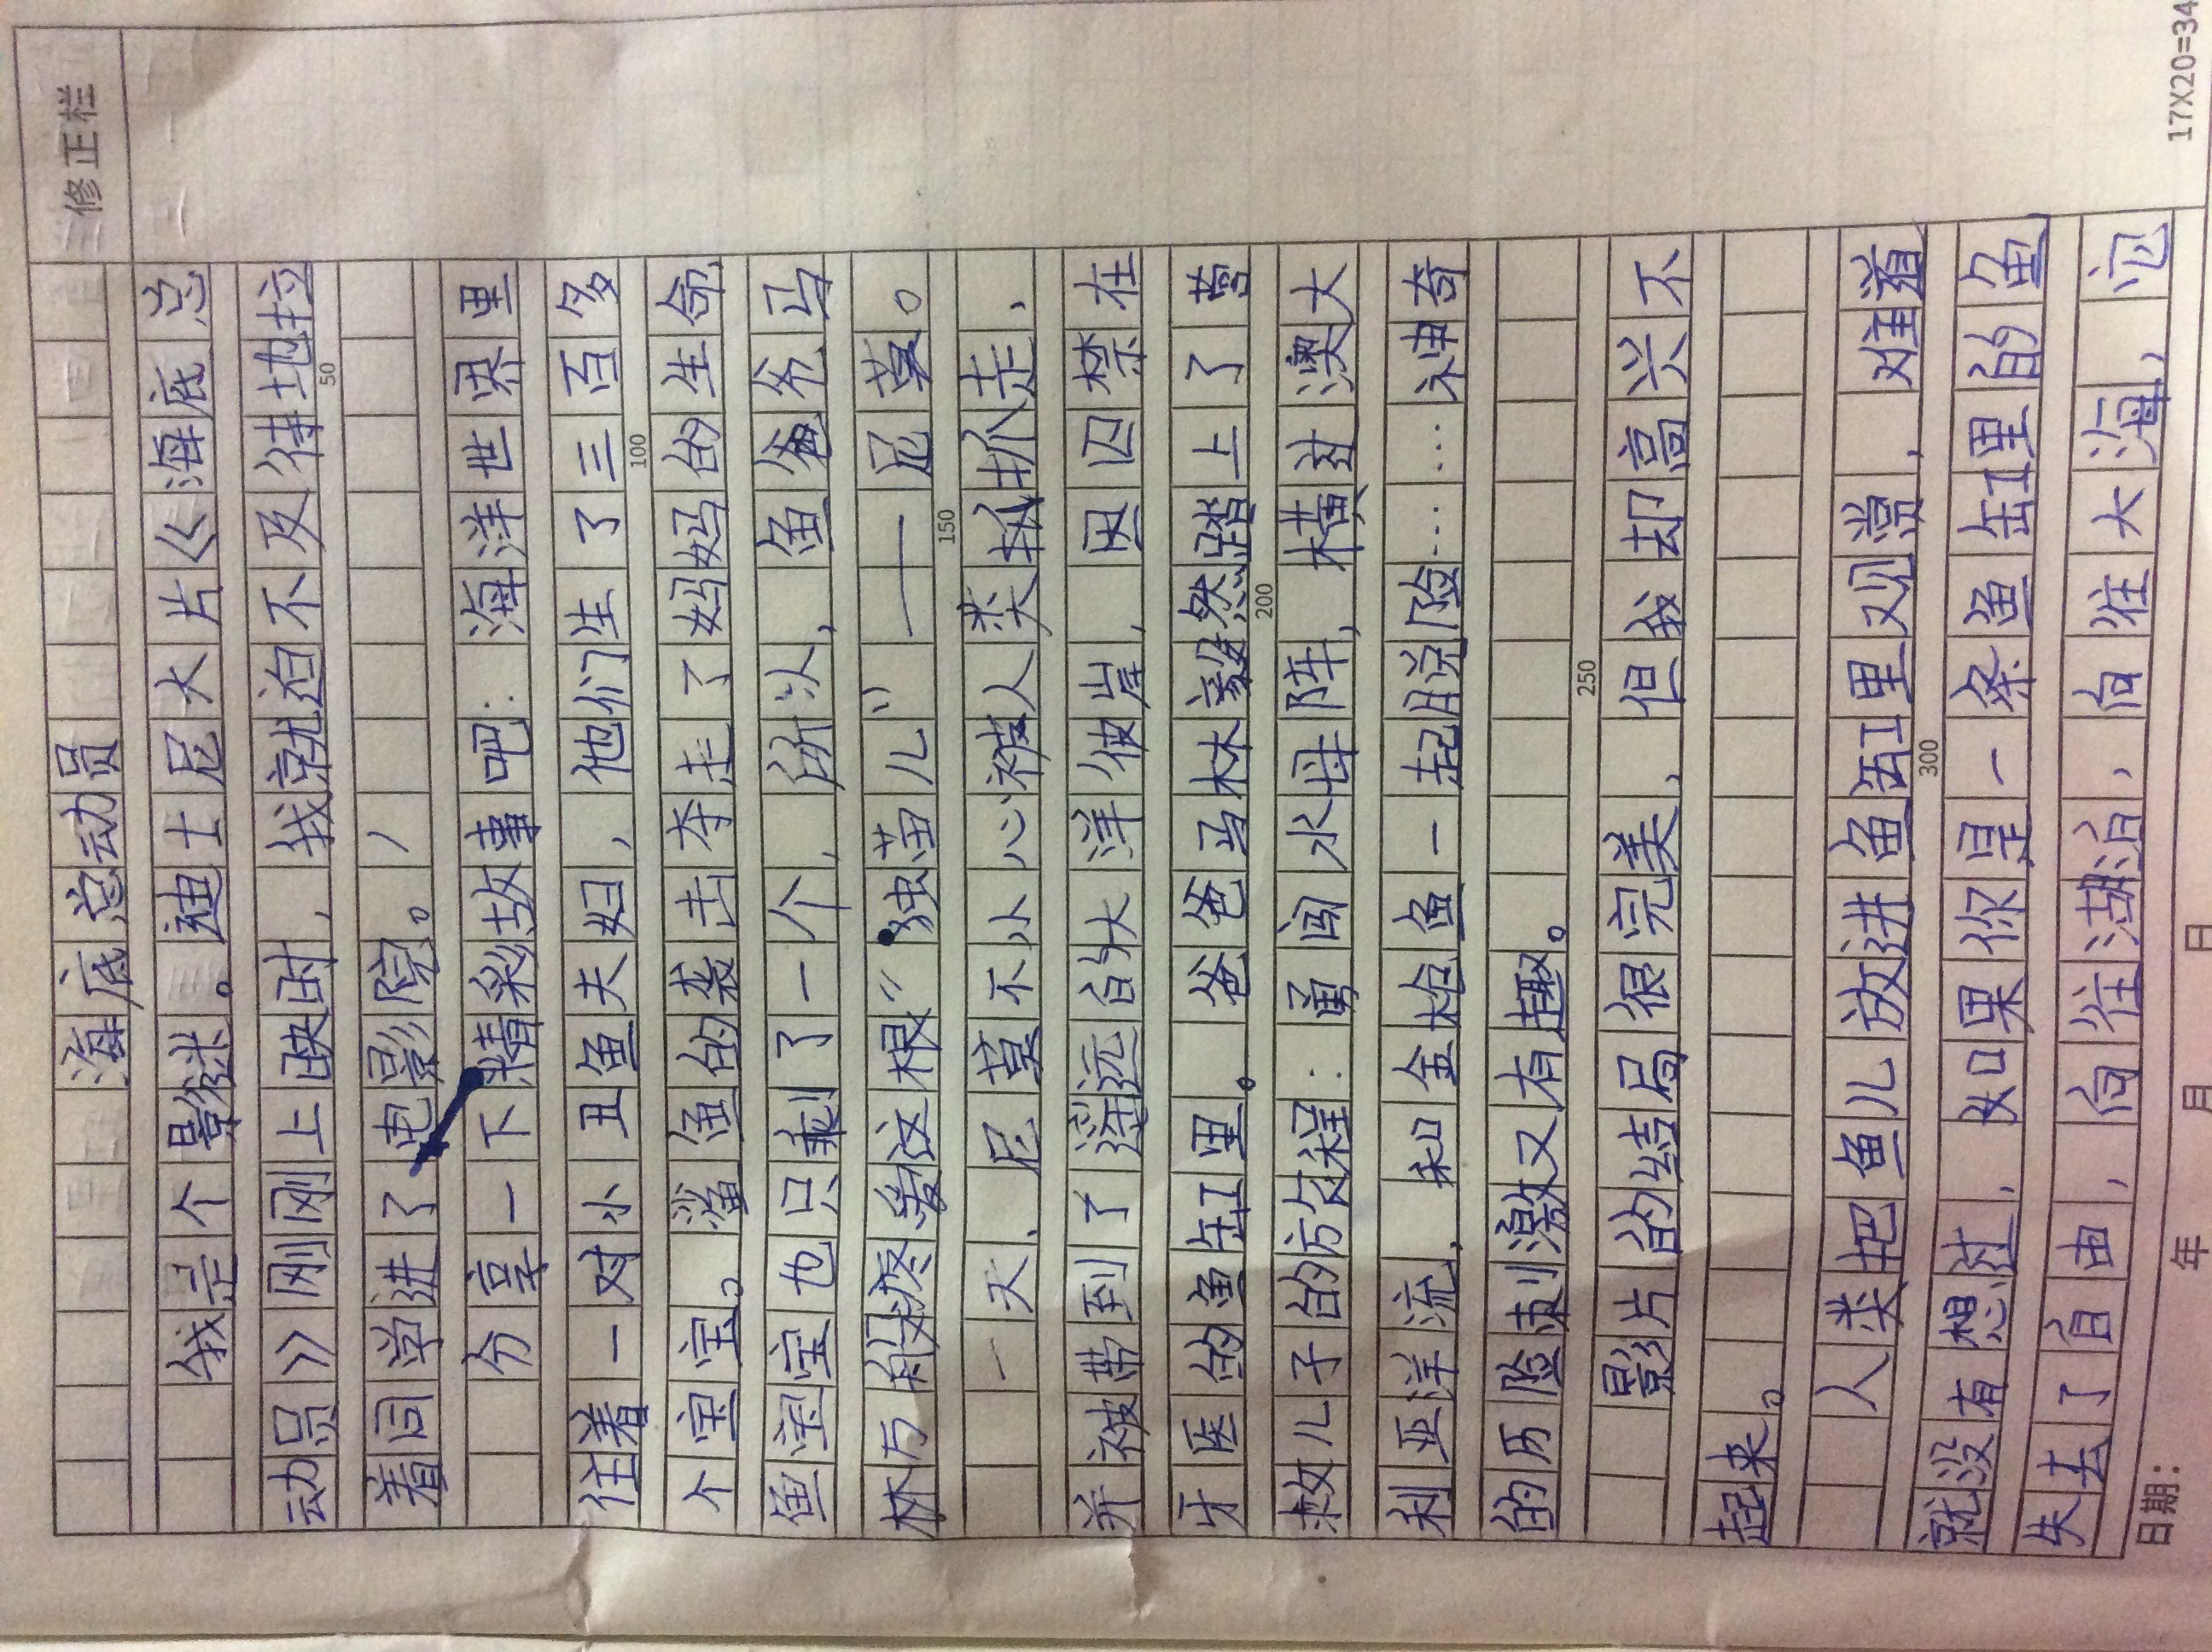 三修正栏
海底总动员
我是个影迷。迪士尼大片《海底总
动员》刚刚上映时,我就迫不及待地拉
着同学进了电影院。
50
分享一下精彩故事吧:海洋世界里
住着一对小丑鱼夫妇,他们生了三百多
100
个宝宝。鲨鱼的袭击夺走了妈妈的生命,
鱼宝宝也只剩了一个,所以,鱼爸爸马
林万般疼爱这根“独苗儿”——尼莫。
150
一天,尼莫不小心被人类抓走,
并被带到了遥远的大洋彼岸,因囚禁在
牙医的鱼缸里。爸爸马林毅然踏上了营
200
救儿子的方包程:勇闯水母阵,横过澳大
利亚洋流,和金枪鱼一起脱险……神奇
的历险刺激又有趣。
250
影片的结局很完美,但我却高兴不
起来。
人类把鱼儿放进鱼缸里观赏,难道
300
就没有想过,如果你是一条鱼缸里的鱼,
失去了自由,向往湖泊,向往大海,
日期: 年 月 日
17X20=34